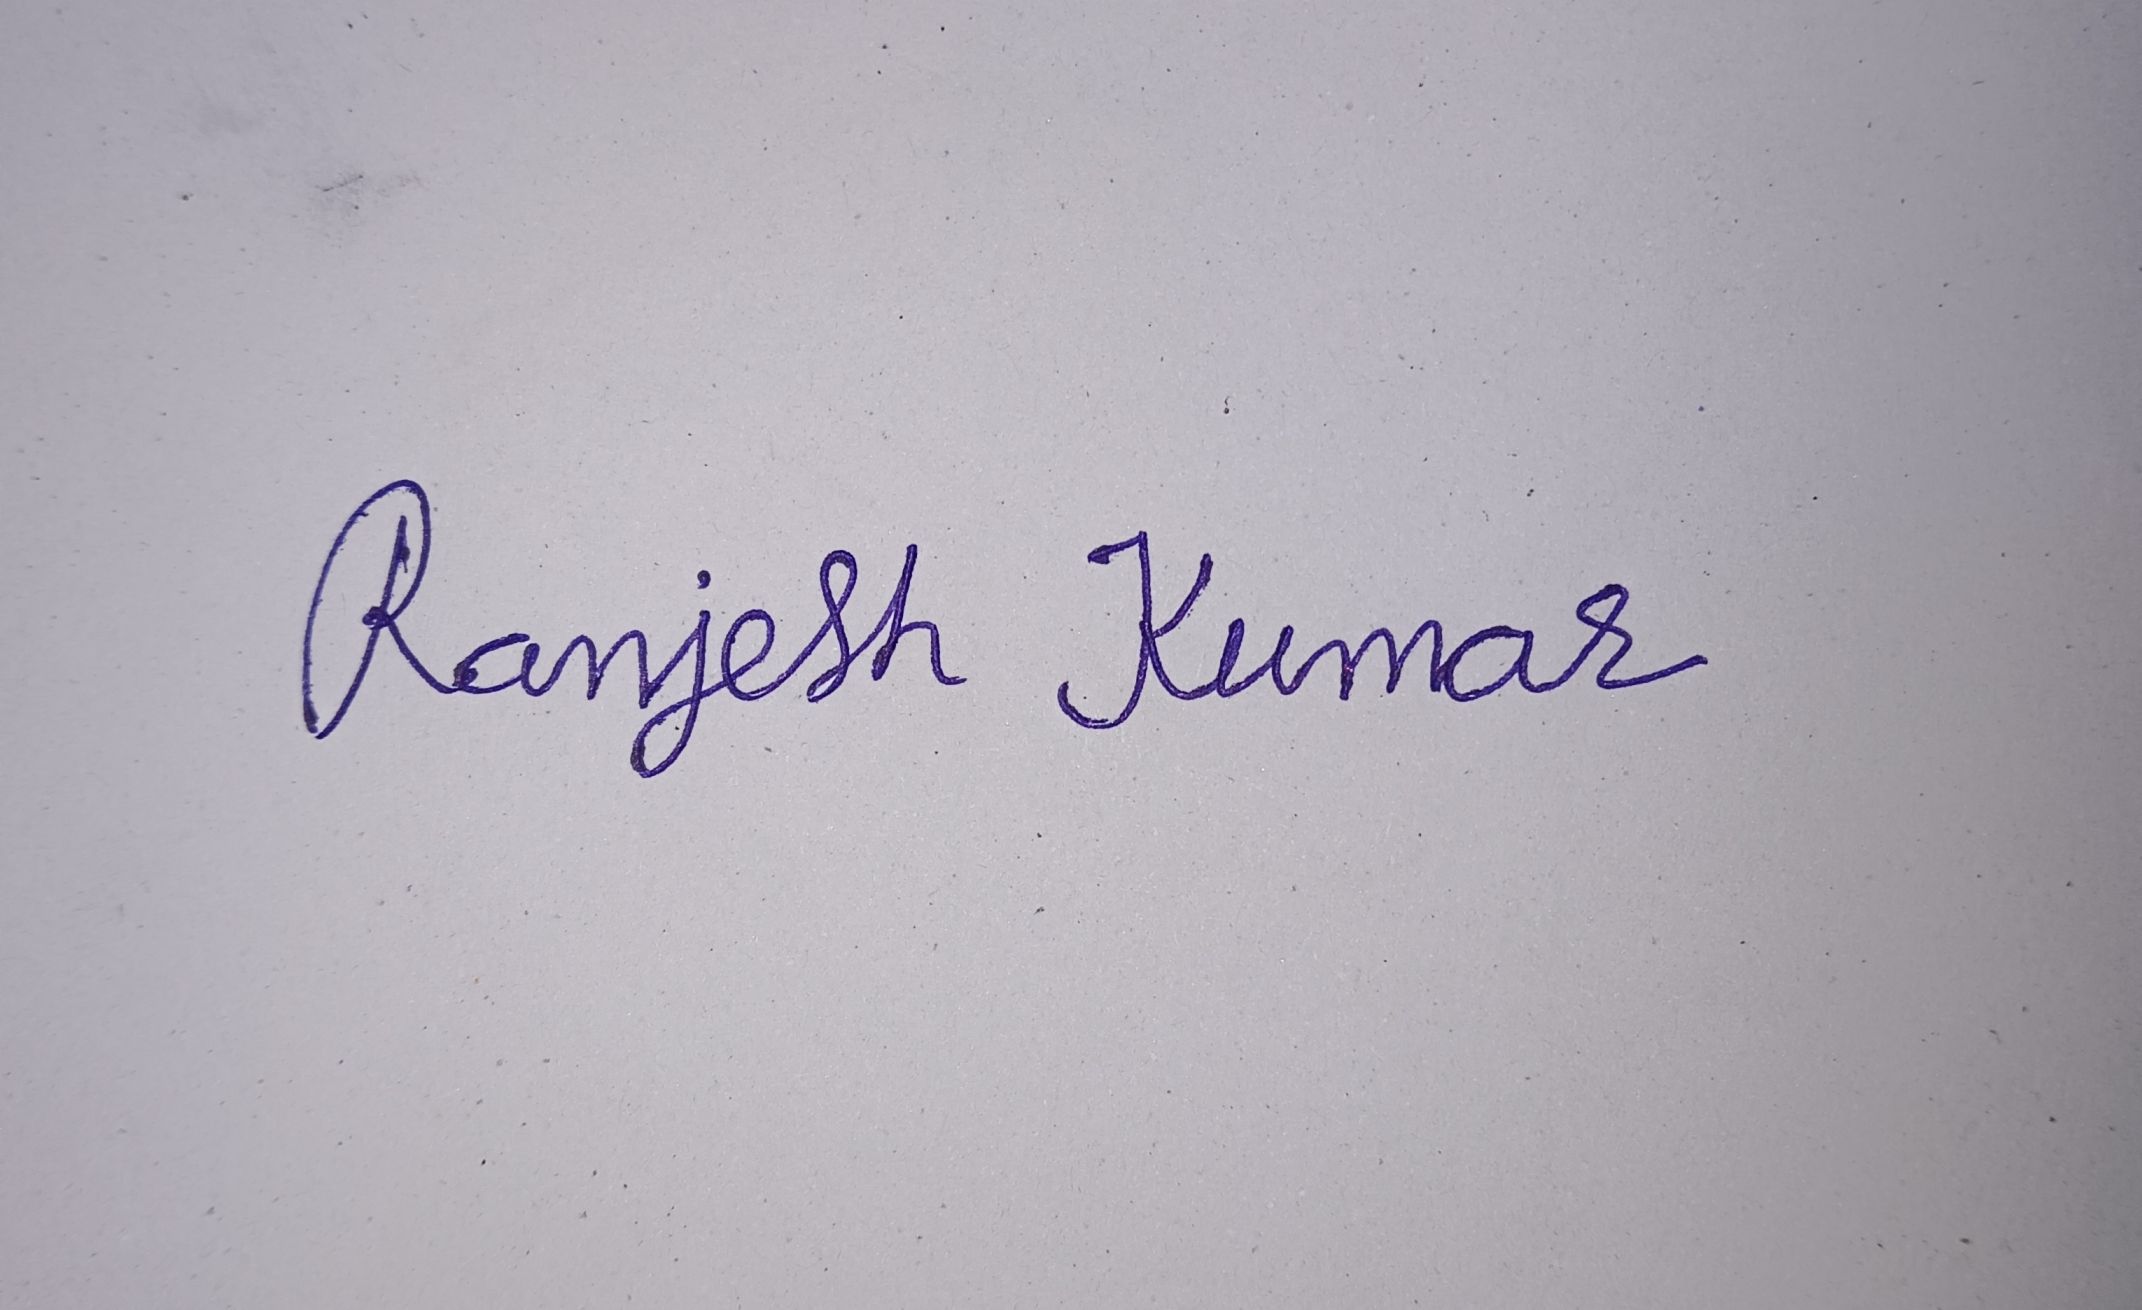 Ranjesh Kumar